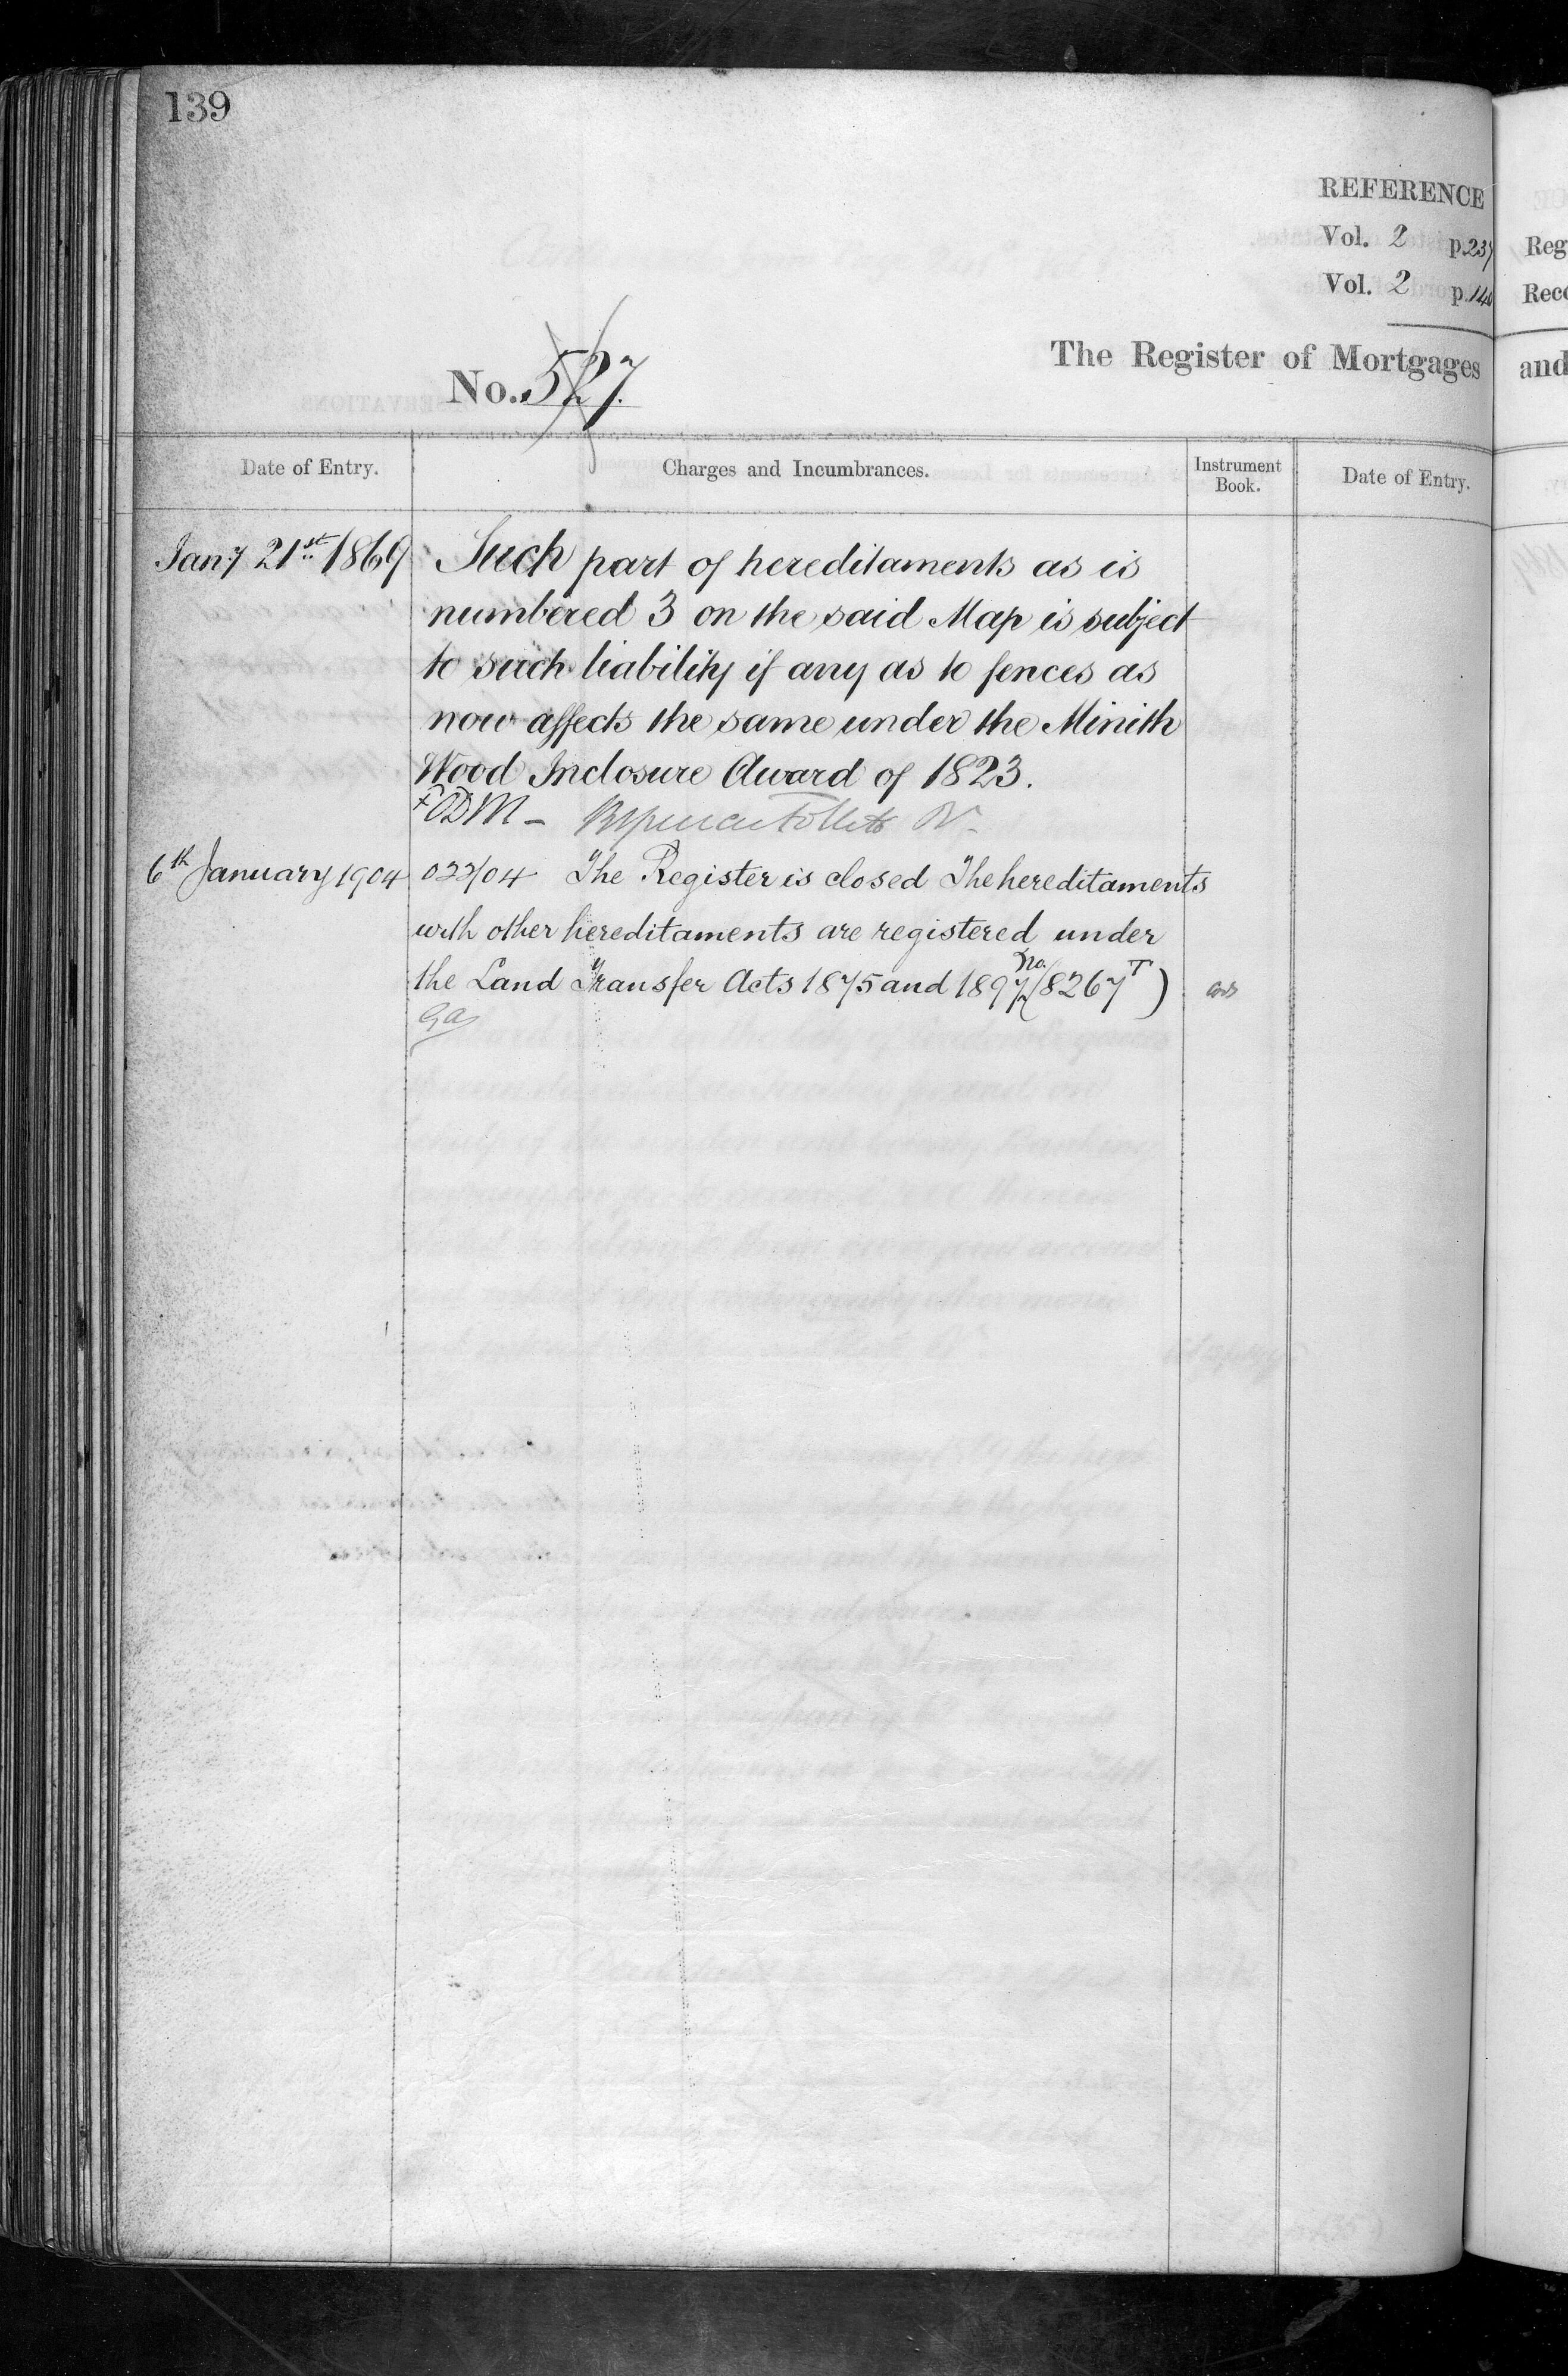 139
REFERENCE
Vol. 2 p.237
Vol. 2 p.140
The Register of Mortgages and
No. 527.
Date of Entry. Charges and Incumbrances. Instrument Book. Date of Entry.
Jany 21st 1869 Such part of hereditaments as is
numbered 3 on the said Map is subject
to such liability if any as to fences as
now affects the same under the Minith
Wood Inclosure Award of 1823.
6th January 1904 022/04 The Register is closed The hereditaments
with other hereditaments are registered under
the Land Transfer Acts 1875 and 1897 (No. 8267T)
Reg
Reco